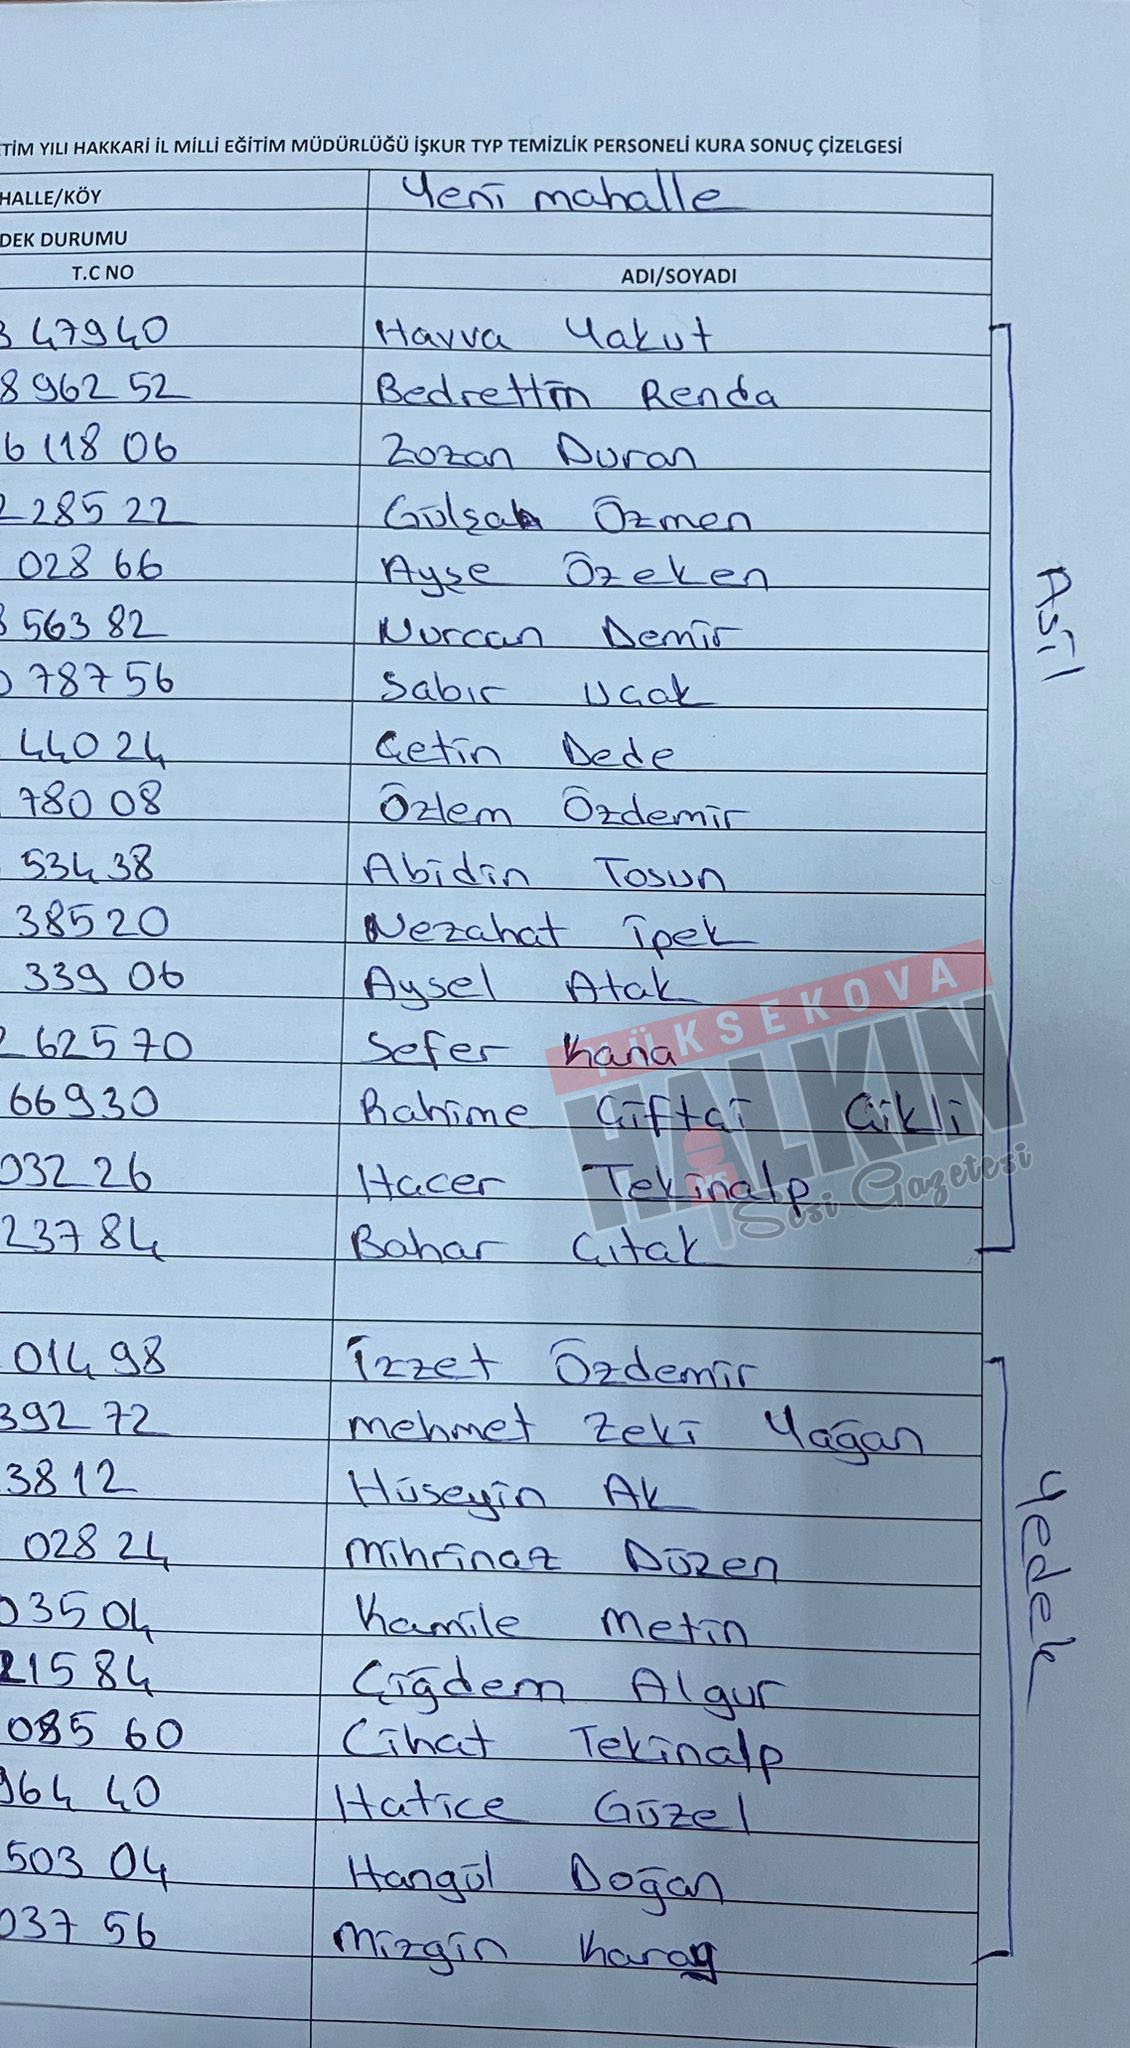 TİM YILI HAKKARİ İL MİLLİ EĞİTİM MÜDÜRLÜĞÜ İŞKUR TYP TEMİZLİK PERSONELİ KURA SONUÇ ÇİZELGESİ
HALLE/KÖY Yeni mahalle
DEK DURUMU
T.C NO ADI/SOYADI
3 47940 Havva Yakut
8 962 52 Bedrettin Renda
6 118 06 Zozan Duran
2 285 22 Gülşah Özmen
028 66 Ayşe Özeken
8 563 82 Nurcan Demir
0 787 56 Sabır Uçak
440 24 Çetin Dede
780 08 Özlem Özdemir
534 38 Abidin Tosun
38520 Nezahat İpek
339 06 Aysel Atak
2 62570 Sefer Kana
66930 Rahime Çiftçi Çikli
032 26 Hacer Tekinalp
237 84 Bahar Çıtak
Asil
014 98 İzzet Özdemir
392 72 Mehmet Zeki Yağan
38 12 Hüseyin Ak
028 24 Mihrinaz Düzen
035 04 Kamile Metin
215 84 Çiğdem Algur
085 60 Cihat Tekinalp
964 40 Hatice Güzel
503 04 Hangül Doğan
037 56 Mizgin
Yedek
YÜKSEKOVA
HALKIN
Sesi Gazetesi